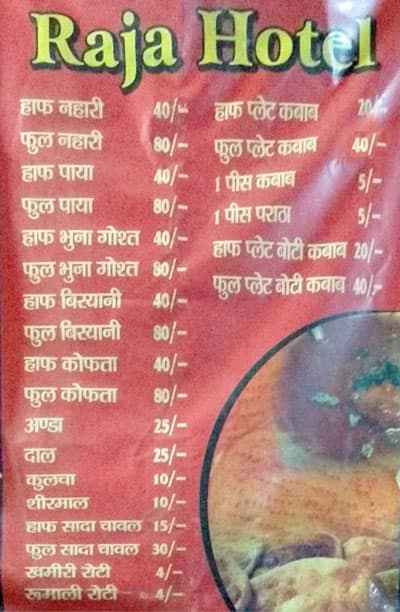 Raja Hotel
हाफ नहारी 40/-
फुल नहारी 80/-
हाफ पाया 40/-
फुल पाया 80/-
हाफ भुना गोश्त 40/-
फुल भुना गोश्त 80/-
हाफ बिरयानी 40/-
फुल बिरयानी 80/-
हाफ कोफता 40/-
फुल कोफता 80/-
अण्डा 25/-
दाल 25/-
कुलचा 10/-
शीरमाल 10/-
हाफ सादा चावल 15/-
फुल सादा चावल 30/-
खमीरी रोटी 4/-
रूमाली रोटी 4/-
हाफ प्लेट कबाब 20/-
फुल प्लेट कबाब 40/-
1 पीस कबाब 5/-
1 पीस पराठा 5/-
हाफ प्लेट बोटी कबाब 20/-
फुल प्लेट बोटी कबाब 40/-